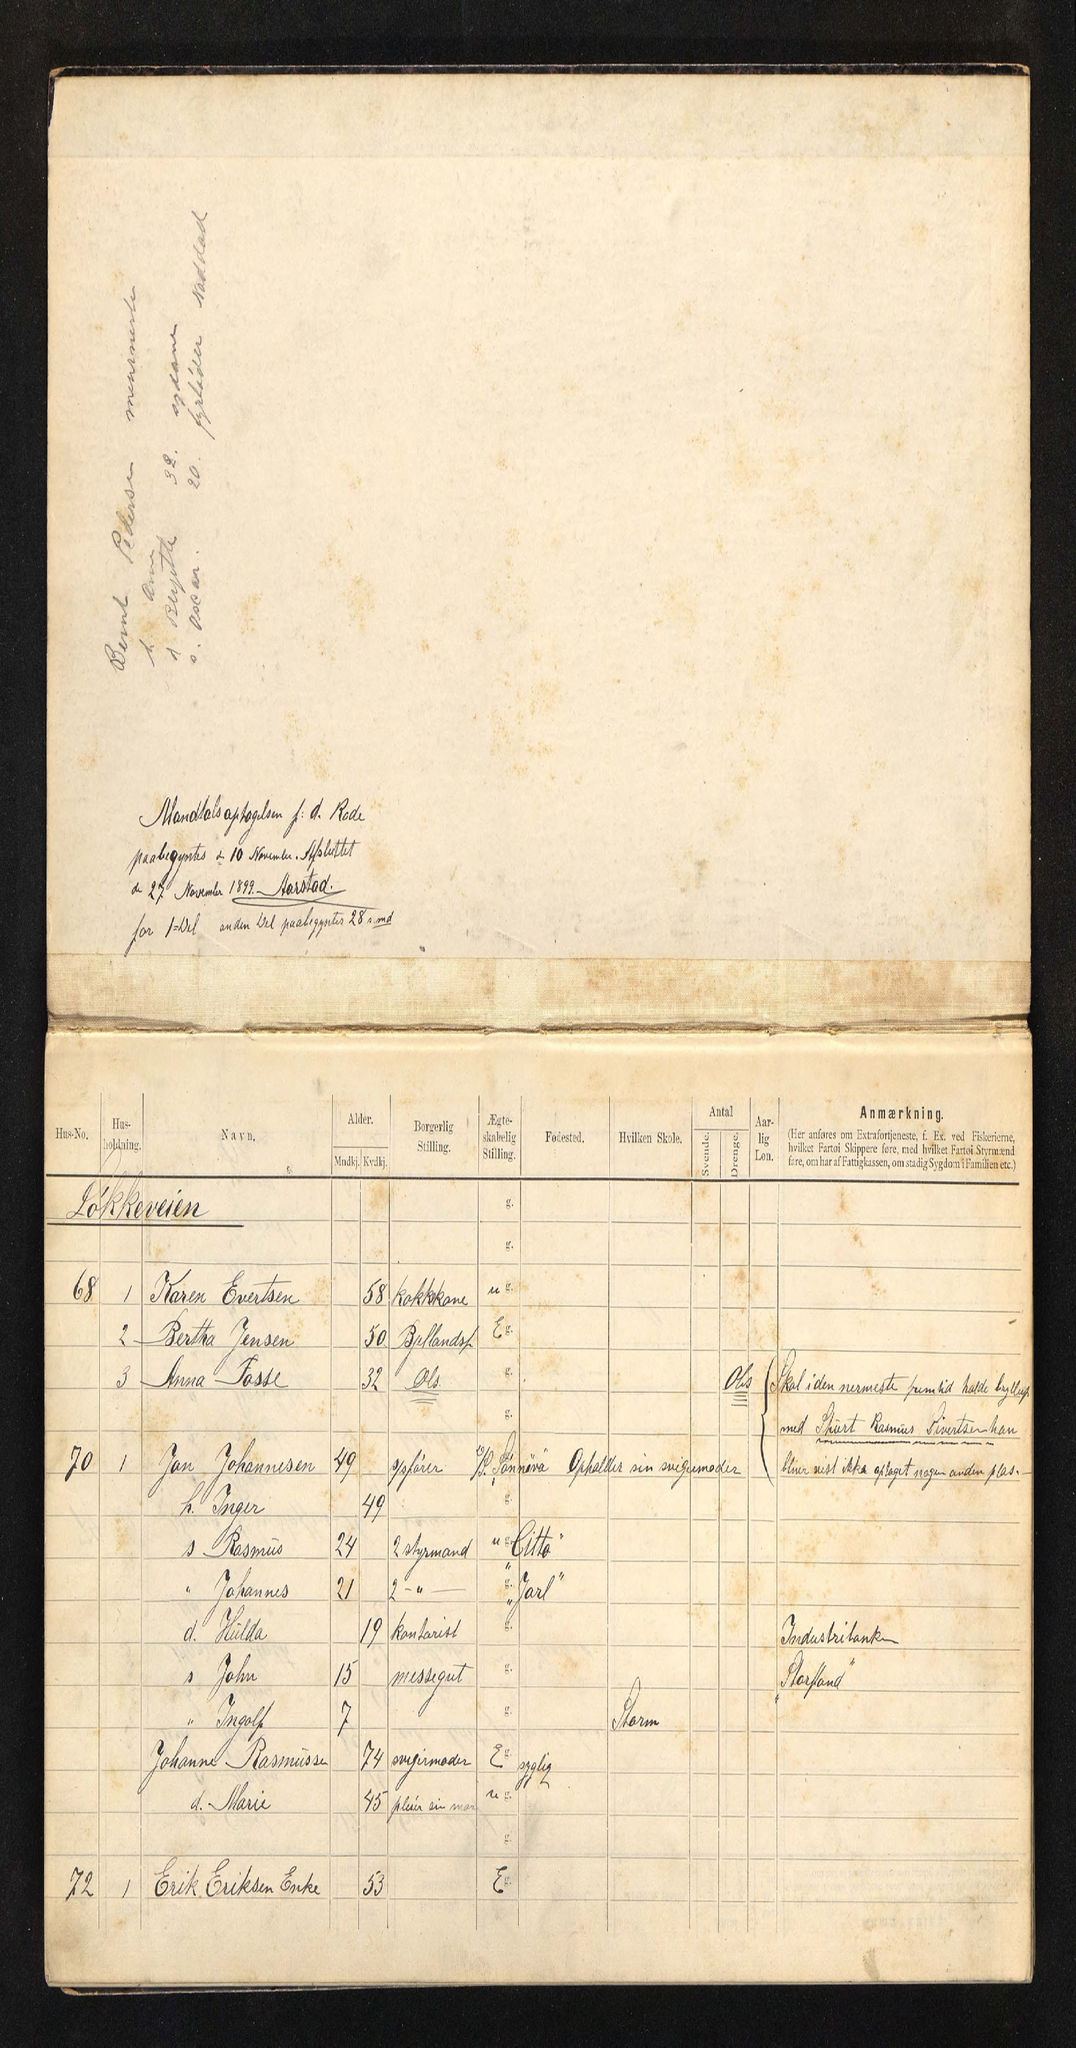 Bernt Pedersen
h. Ane
d Bergitta 32. sydame
s. Oscar. 20. fyrbøder
Mandtalsoptagelsen f: d. Rode
paabegyntes d 10 November. Afsluttet
de 27 November 1899. Aarstad.
for 1=Del anden Del paabegyntes 28 s. md
Hus-No. Hus-holdning. Navn. Alder. Mndkj. Kvdkj. Borgerlig Stilling. Ægte-skabelig Stilling. Fødested. Hvilken Skole. Antal Svende. Drenge. Aar-lig Løn. Anmærkning.
(Her anføres om Extrafortjeneste, f. Ex. ved Fiskerierne,
hvilket Fartøi Skippere føre, med hvilket Fartøi Styrmænd
fare, om har af Fattigkassen, om stadig Sygdom i Familien etc.)
Løkkeveien g.
g.
68 1 Karen Evertsen 58 kokkone u g.
2 Bertha Jensen 50 E g.
3 Anna Fosse 32 Obs g. Obs Skal i den nermeste fremtid holde bryllup
g. med Stuert Rasmus Sivertsen han
70 1 Jan Johannesen 49 s/sfører D/S. "Sønneva" Opholder sin svigermoder bliver vist ikke optaget nogen anden plas.
h. Inger 49 g.
s Rasmus 24 2 styrmand u g. "Citto"
" Johannes 21 2 - " - g. "Jarl"
d. Hulda 19 kontorist g. Industribanken
s John 15 messegut g. "Storfond"
" Ingolf 7 g. Storm
Johanne Rasmussen 74 svigermoder E g. syglig
d. Marie 45 pleier sin mor u g.
g.
72 1 Erik Eriksen Enke 53 E g.